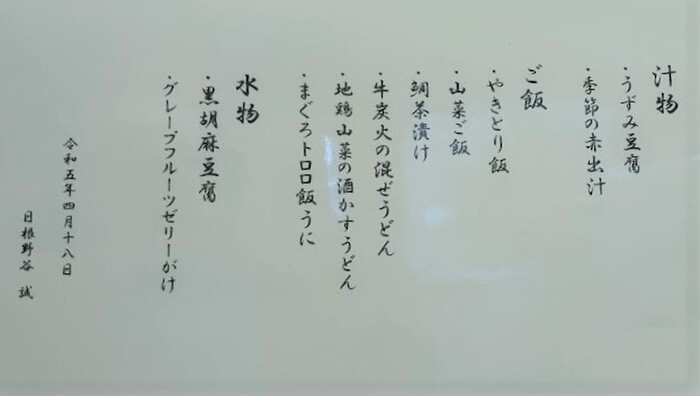 汁物
・うずみ豆腐
・季節の赤出汁
ご飯
・やきとり飯
・山菜ご飯
・鯛茶漬け
・牛炭火の混ぜうどん
・地鶏山菜の酒かすうどん
・まぐろトロロ飯うに
水物
・黒胡麻豆腐
・グレープフルーツゼリーがけ
令和五年四月十八日
日根野谷 誠